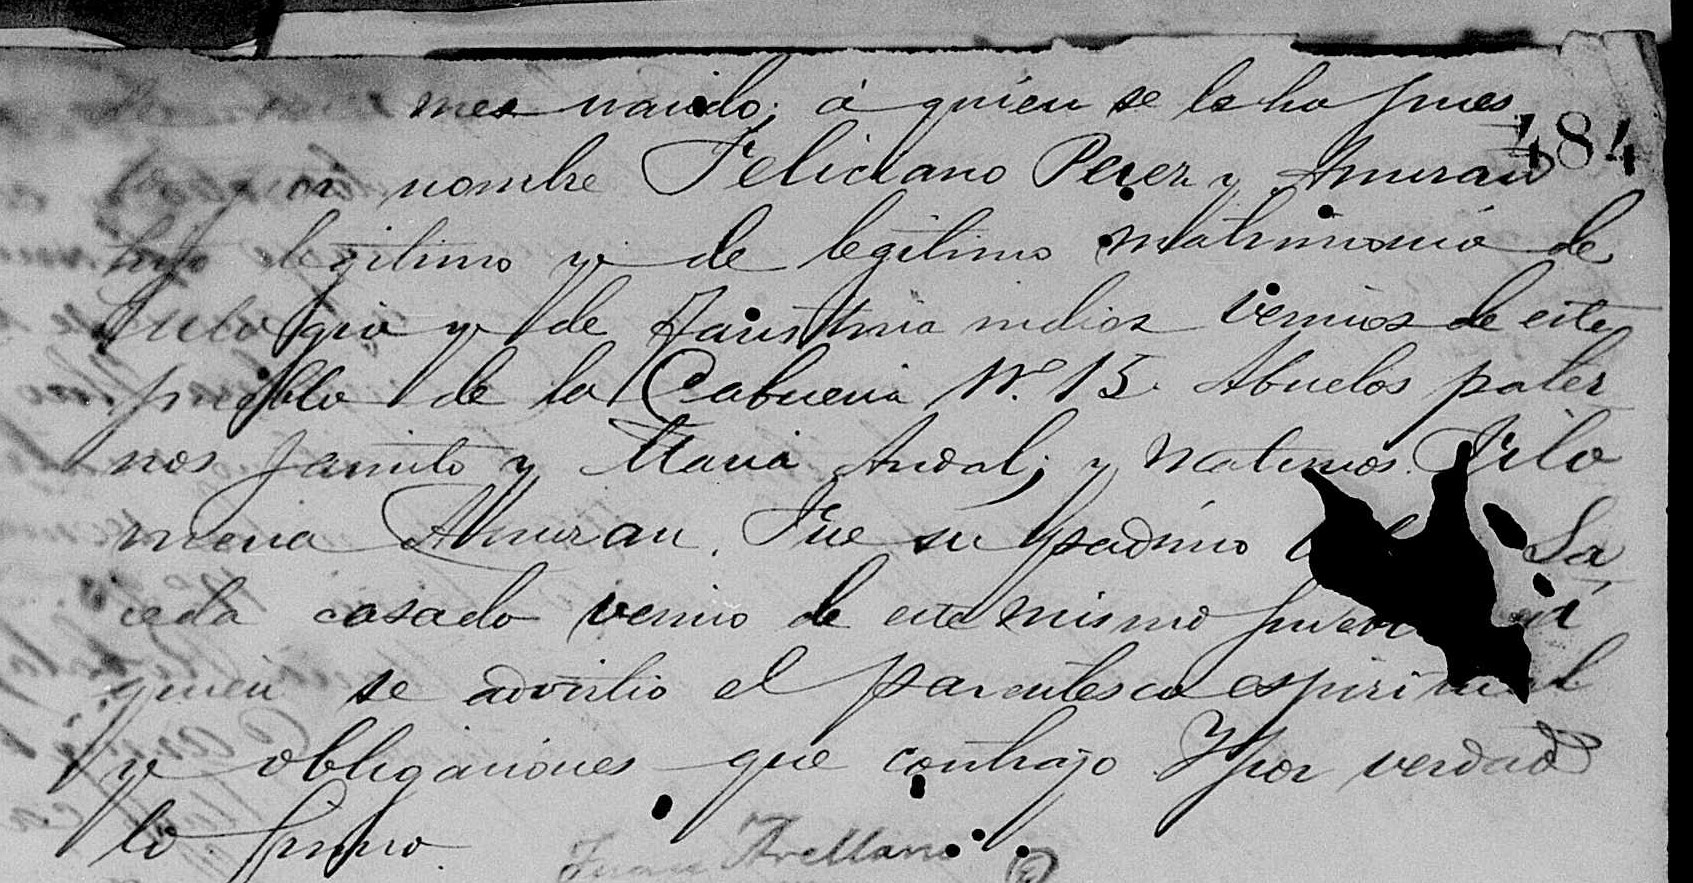 mes nacido; á quien se le ha pues
484
por nombre Feliciano Perez y Amurao
hijo legitimo y de legitimo matrimonio de
Eulogio y de Faustina indios vecinos de este
pueblo de la Cabeceria Nº. 15. Abuelos pater
nos Jacinto y Maria Andal; y maternos Filo
mena Amurao. Fue su padrino Sa
ceda casado vecino de este mismo á
quien se advirtio el parentesco espiritual
y obligaciones que contrajo Y por verdad
lo firmo.
Juan Arellano